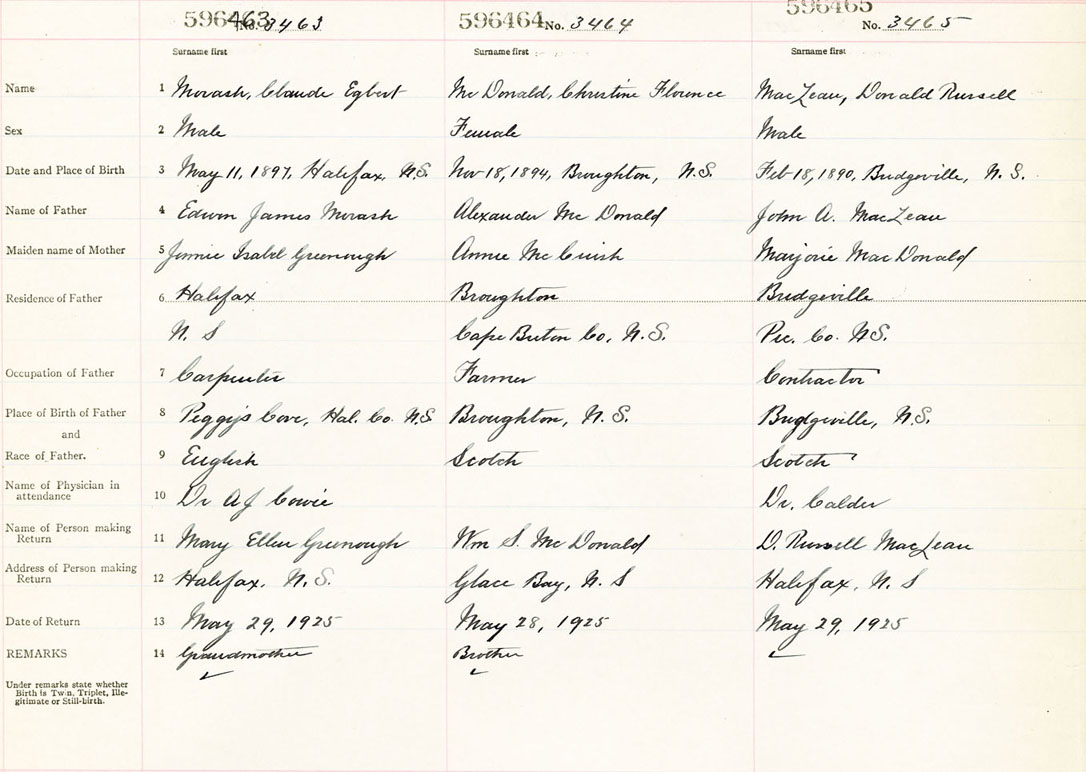 596463 No. 3463 596464 No. 3464 596465 No. 3465
Surname first Surname first Surname first
Name 1 Morash, Claude Egbert Mc Donald, Christine Florence MacLean, Donald Russell
Sex 2 Male Female Male
Date and Place of Birth 3 May 11, 1897, Halifax, N.S. Nov 18, 1894, Broughton, N.S. Feb 18, 1890, Bridgeville, N.S.
Name of Father 4 Edwin James Morash Alexander Mc Donald John A. MacLean
Maiden name of Mother 5 Jennie Isabel Greenough Annie Mc Cuish Marjorie MacDonald
Residence of Father 6 Halifax Broughton Bridgeville
N. S Cape Breton Co, N.S. Pic. Co. N.S.
Occupation of Father 7 Carpenter Farmer Contractor
Place of Birth of Father 8 Peggy's Cove, Hal. Co. N.S Broughton, N.S. Bridgeville, N.S.
and
Race of Father. 9 English Scotch Scotch
Name of Physician in
attendance 10 Dr A J Cowie Dr. Calder
Name of Person making
Return 11 Mary Ellen Greenough Wm S. Mc Donald D. Russell MacLean
Address of Person making
Return 12 Halifax, N.S. Glace Bay, N. S Halifax, N. S
Date of Return 13 May 29, 1925 May 28, 1925 May 29, 1925
REMARKS 14 Grandmother Brother
Under remarks state whether
Birth is Twin, Triplet, Ille-
gitimate or Still-birth.